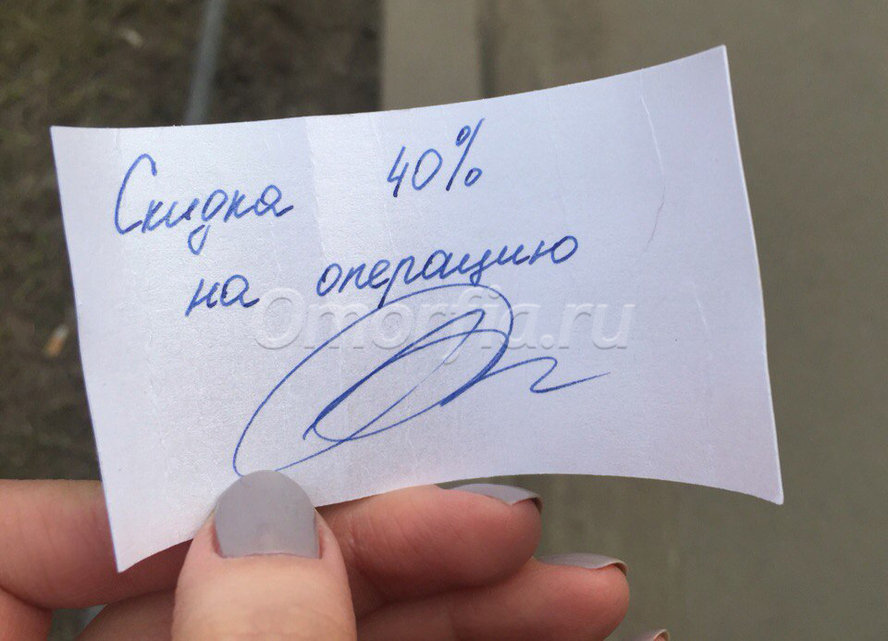 Скидка 40%
на операцию
Omorfia.ru